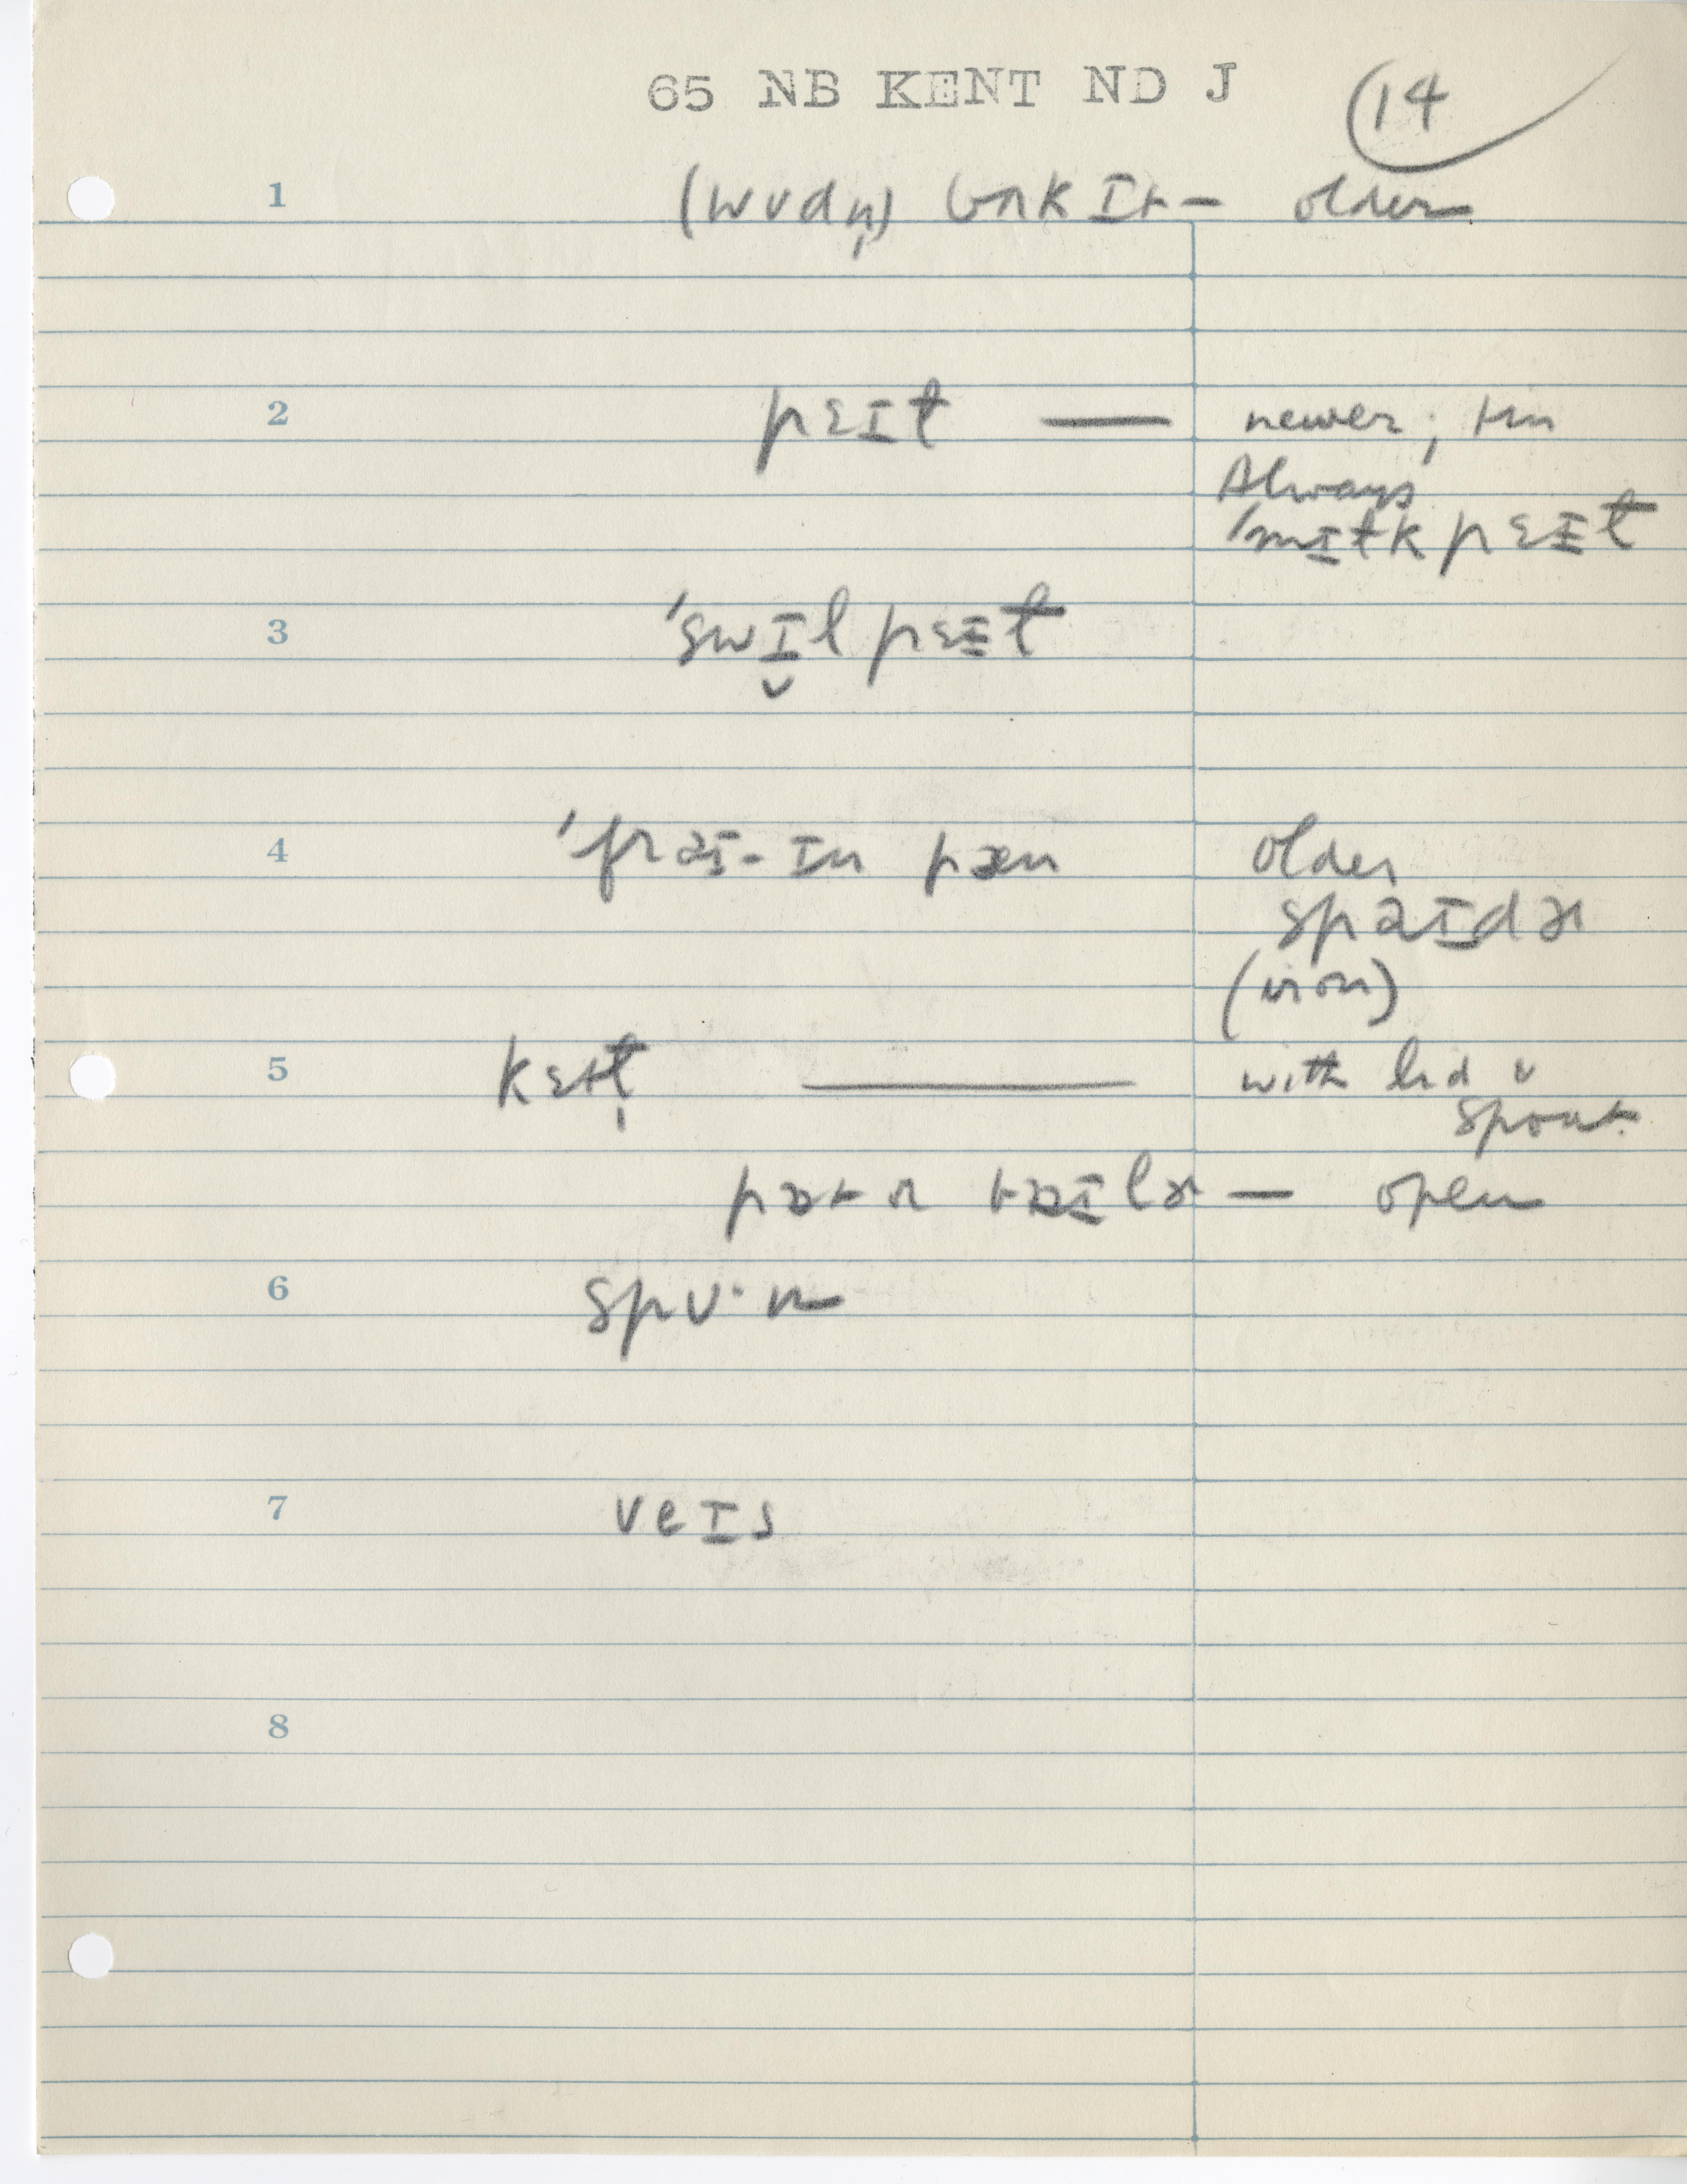 65 NB KENT ND J 14
1 (wʊdn̩) bʌkɪt – older
2 pɛɪɫ — newer; tin
Always
ˈmɪɫk pɛɪɫ
3 ˈswɪ̬l pɛɪɫ
4 ˈfraɪ-ɪn pæn older
spaɪdɚ
(iron)
5 kɛtɫ̩ — with lid v
spout.
pat ɚ – open
6 spu·n
7 veɪs
8